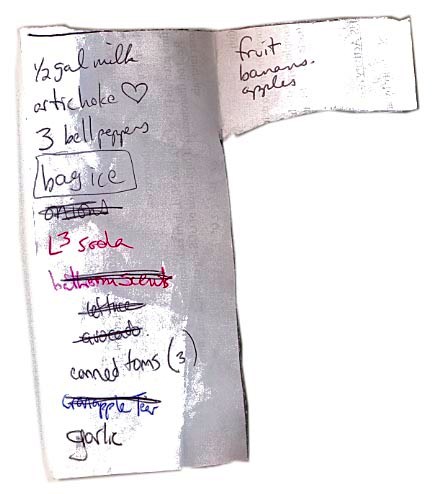 1/2 gal milk
artichoke ♡
3 bell peppers
bag ice
onions
L3 soda
bathroom scent
lettuce
avocado.
canned toms (3)
garlic
fruit
banana.
apples